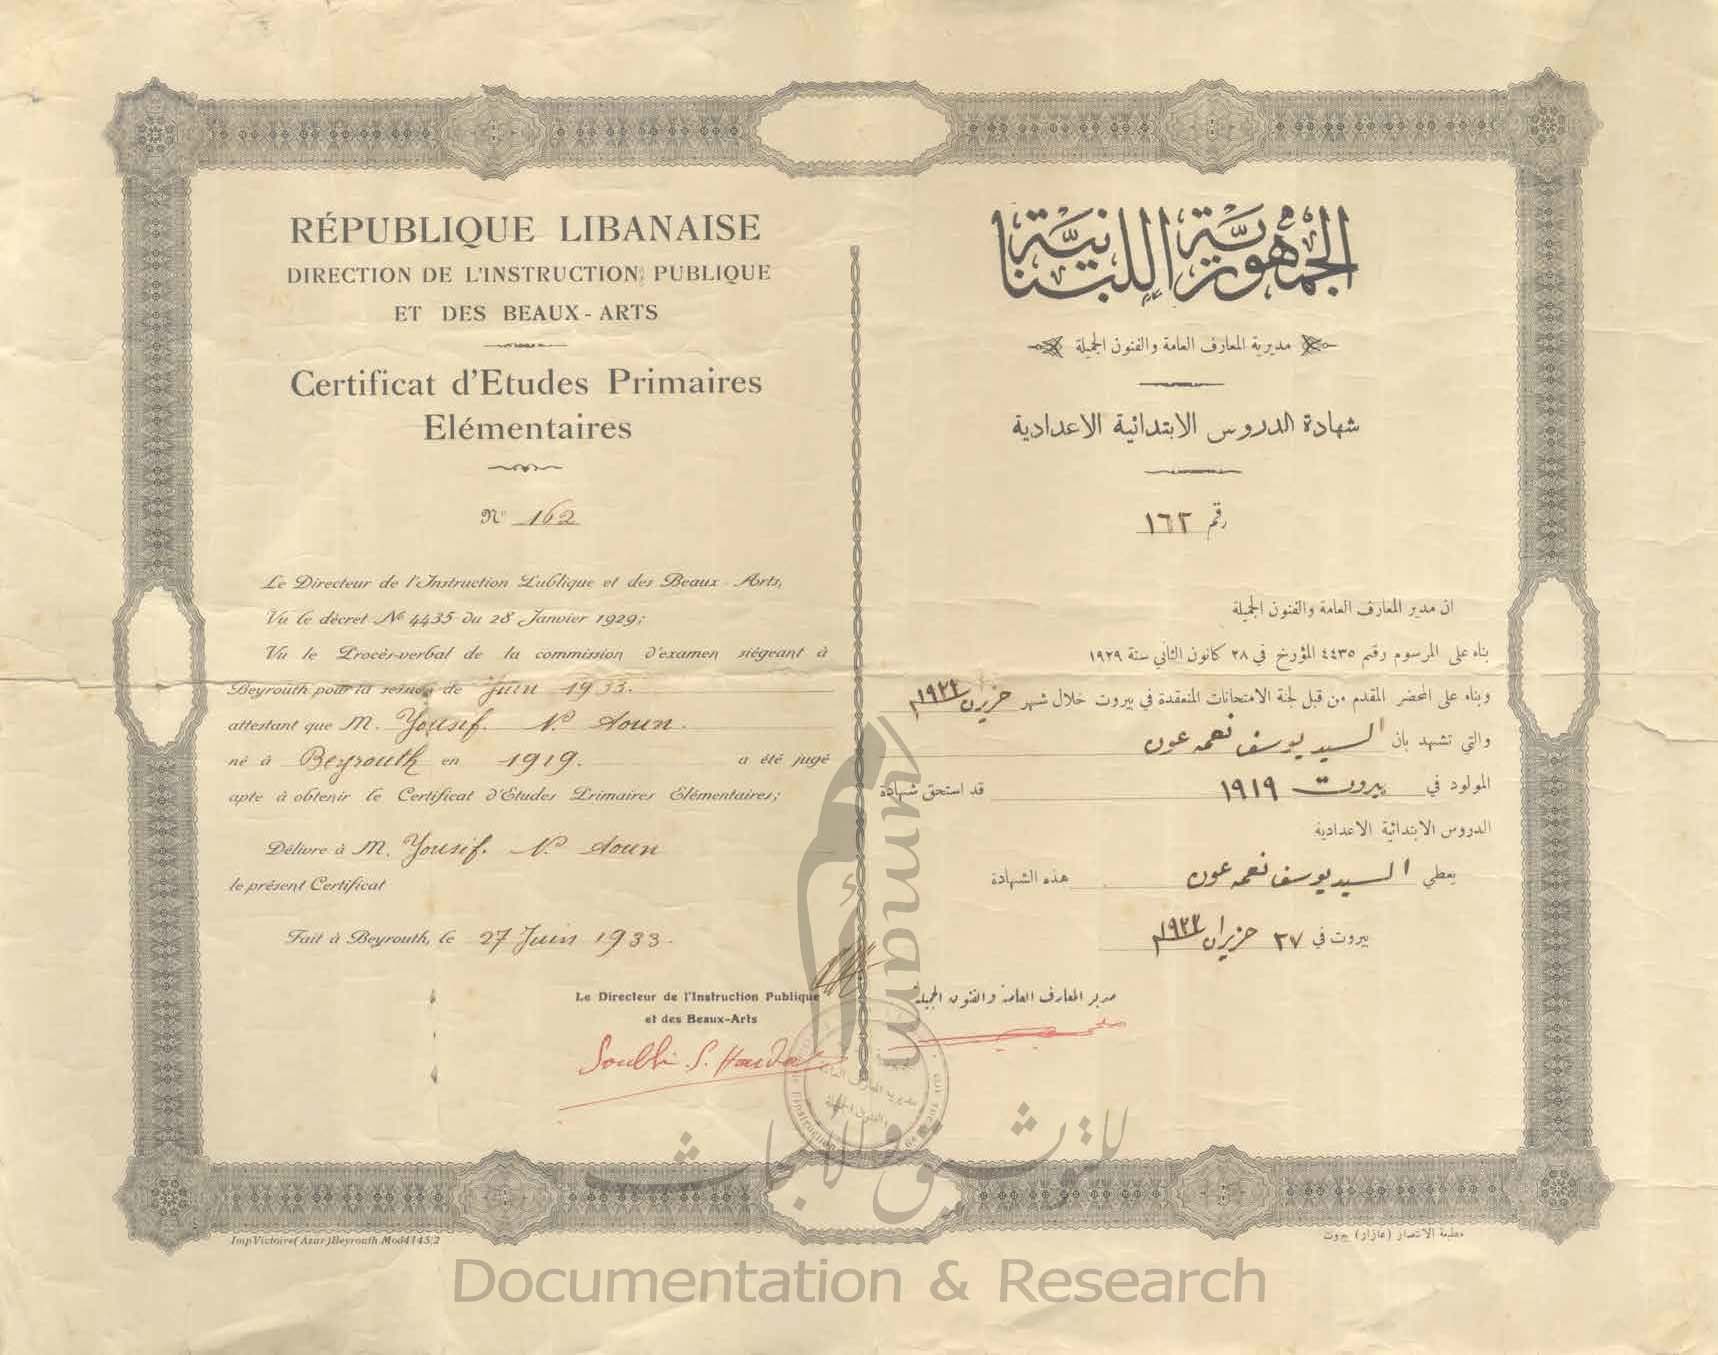 RÉPUBLIQUE LIBANAISE
DIRECTION DE L'INSTRUCTION PUBLIQUE
ET DES BEAUX-ARTS
Certificat d'Etudes Primaires
Elémentaires
N° 162
Le Directeur de l'Instruction Publique et des Beaux-Arts,
Vu le décret N° 4435 du 28 Janvier 1929;
Vu le Procès-verbal de la commission d'examen siégeant à
Beyrouth pour la session de Juin 1933.
attestant que M. Yousif. N. Aoun.
né à Beyrouth en 1919. a été jugé
apte à obtenir le Certificat d'Etudes Primaires Elémentaires;
Délivre à M. Yousif. N. Aoun
le présent Certificat
Fait à Beyrouth, le 27 Juin 1933.
Le Directeur de l'Instruction Publique
et des Beaux-Arts
Imp Victoire (Azar) Beyrouth Mod4145/2
الجمهورية اللبنانية
مديرية المعارف العامة والفنون الجميلة
شهادة الدروس الابتدائية الاعدادية
رقم ١٦٢
ان مدير المعارف العامة والفنون الجميلة
بناء على المرسوم رقم ٤٤٣٥ المؤرخ في ٢٨ كانون الثاني سنة ١٩٢٩
وبناء على المحضر المقدم من قبل لجنة الامتحانات المنعقدة في بيروت خلال شهر حزيران ١٩٣٣
والتي تشهد بان السيد يوسف نعمه عون
المولود في بيروت ١٩١٩ قد استحق شهادة
الدروس الابتدائية الاعدادية
يعطي السيد يوسف نعمه عون هذه الشهادة
بيروت في ٢٧ حزيران ١٩٣٣
مدير المعارف العامة والفنون الجميلة
مطبعة الانتصار (عازار) بيروت
أمم Umam
للتوثيق والأبحاث
Documentation & Research